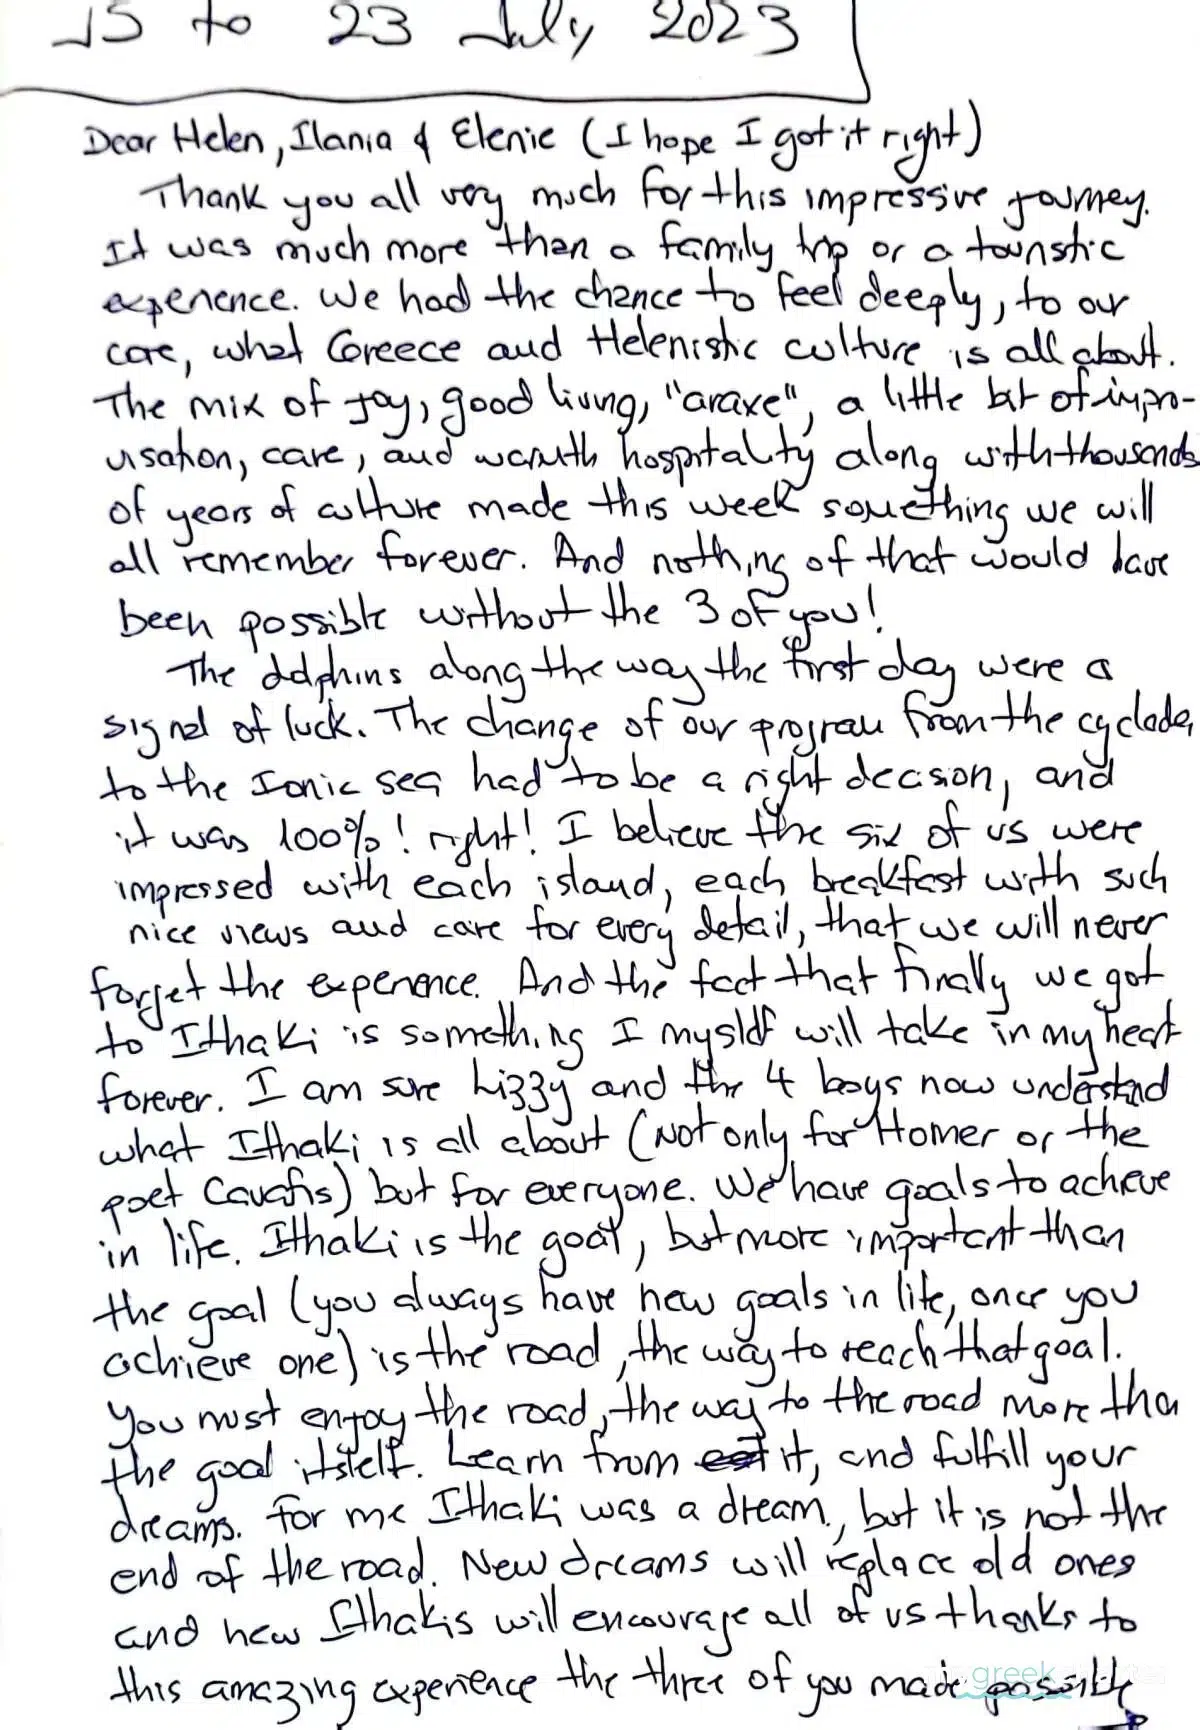 15 to 23 July 2023
Dear Helen, Ilania & Elenie (I hope I got it right)
Thank you all very much for this impressive journey.
It was much more than a family trip or a touristic
experience. We had the chance to feel deeply, to our
core, what Greece and Helenistic culture is all about.
The mix of joy, good living, "araxe", a little bit of impro-
visation, care, and warmth hospitality along with thousands
of years of culture made this week something we will
all remember forever. And nothing of that would have
been possible without the 3 of you!
The dolphins along the way the first day were a
signal of luck. The change of our program from the cyclades
to the Ionic sea had to be a right decision, and
it was 100%! right! I believe the six of us were
impressed with each island, each breakfast with such
nice views and care for every detail, that we will never
forget the experience. And the fact that finally we got
to Ithaki is something I myself will take in my heart
forever. I am sure Lizzy and the 4 boys now understand
what Ithaki is all about (Not only for Homer or the
poet Cavafis) but for everyone. We have goals to achieve
in life. Ithaki is the goal, but more important than
the goal (you always have new goals in life, once you
achieve one) is the road, the way to reach that goal.
You must enjoy the road, the way to the road more than
the goal itself. Learn from it, and fulfill your
dreams. For me Ithaki was a dream, but it is not the
end of the road. New dreams will replace old ones
and new Ithakis will encourage all of us thanks to
this amazing experience the three of you made possible
greek